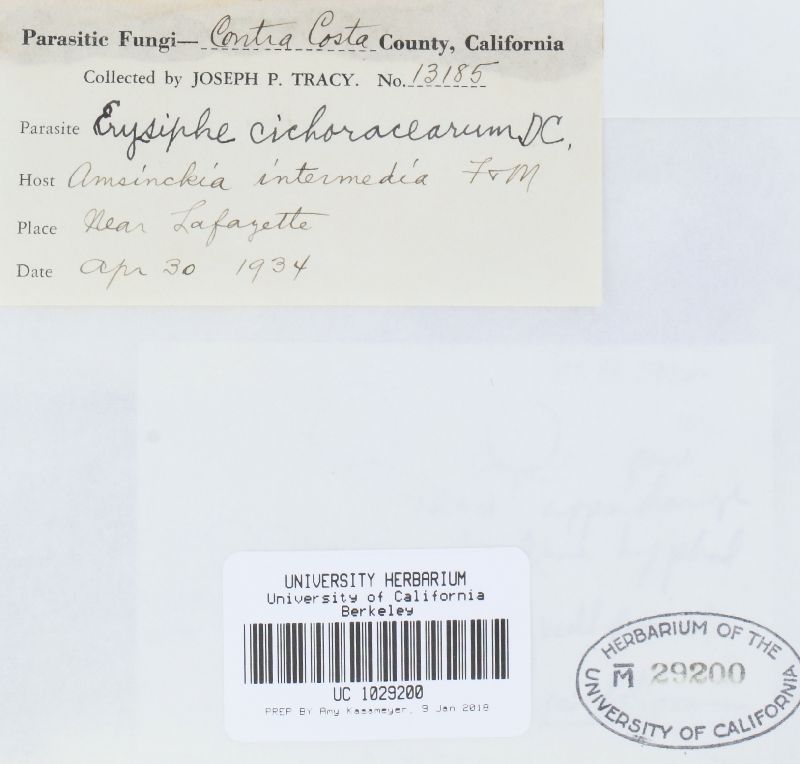 Parasitic Fungi—Contra Costa County, California
Collected by JOSEPH P. TRACY. No. 13185
Parasite Erysiphe cichoracearum DC.
Host Amsinckia intermedia F & M
Place Near Lafayette
Date Apr 30 1934
UNIVERSITY HERBARIUM
University of California
Berkeley
UC 1029200
PREP BY Amy Kasameyer, 9 Jan 2018
HERBARIUM OF THE
M 29200
UNIVERSITY OF CALIFORNIA